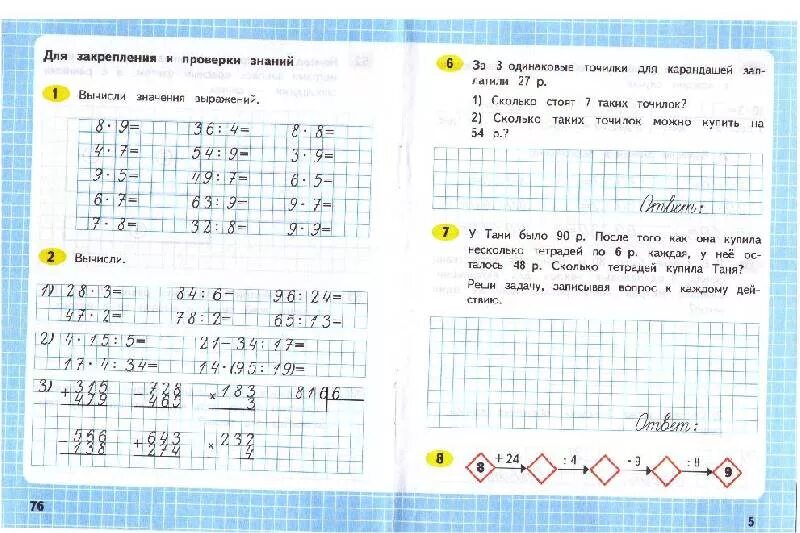 Для закрепления и проверки знаний
1 Вычисли значения выражений.
8 · 9= 36 : 4= 8 · 8=
4 · 7= 54 : 9= 3 · 9=
3 · 5= 49 : 7= 6 · 5=
6 · 7= 63 : 9= 9 · 7=
7 · 8= 32 : 8= 9 · 9=
2 Вычисли.
1) 28 · 3= 84 : 6= 96 : 24=
47 · 2= 78 : 2= 65 : 13=
2) 4 · 15 : 5= 21 − 34 : 17=
17 · 4 : 34= 14 · (95 : 19)=
3) + 315 − 728 × 183 816 6
479 465 3
− 556 + 643 × 232
138 274 4
76
6 За 3 одинаковые точилки для карандашей зап-
латили 27 р.
1) Сколько стоят 7 таких точилок?
2) Сколько таких точилок можно купить на
54 р.?
Ответ:
7 У Тани было 90 р. После того как она купила
несколько тетрадей по 6 р. каждая, у неё ос-
талось 48 р. Сколько тетрадей купила Таня?
Реши задачу, записывая вопрос к каждому дей-
ствию.
Ответ:
8 8 +24 : 4 · 9 : 8 9
5